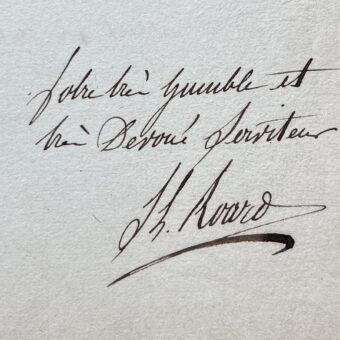 Votre très humble et
très Devoué Serviteur
Th. Roard